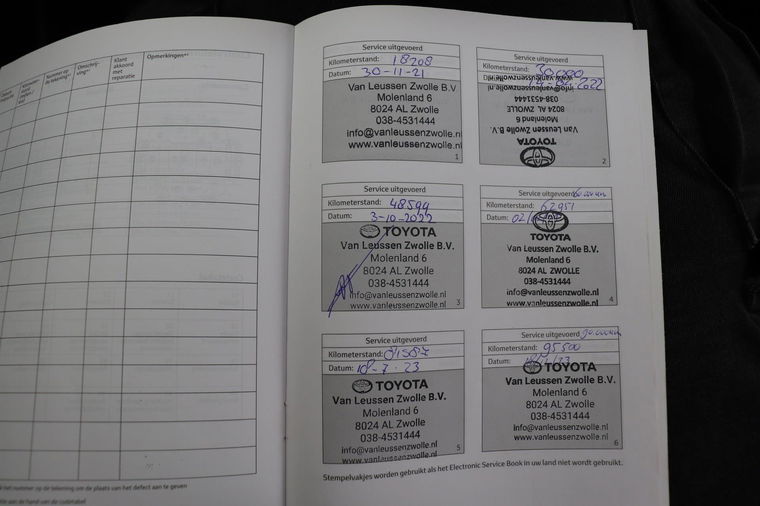 Nummer op de tekening*¹
Omschrij-ving*²
Klant akkoord met reparatie
Opmerkingen*³
het nummer op de tekening om de plaats van het defect aan te geven
aan de hand van de codetabel
Service uitgevoerd
Kilometerstand: 18208
Datum: 30-11-21
Van Leussen Zwolle B.V.
Molenland 6
8024 AL Zwolle
038-4531444
info@vanleussenzwolle.nl
www.vanleussenzwolle.nl
1
Service uitgevoerd
Kilometerstand: 30.000
www.vanleussenzwolle.nl
info@vanleussenzwolle.nl
038-4531444
8024 AL ZWOLLE
Molenland 6
Van Leussen Zwolle B.V.
TOYOTA
2
Service uitgevoerd
Kilometerstand: 48594
Datum: 3-10-2022
TOYOTA
Van Leussen Zwolle B.V.
Molenland 6
8024 AL Zwolle
038-4531444
info@vanleussenzwolle.nl
www.vanleussenzwolle.nl
3
Service uitgevoerd
Kilometerstand: 62951
Datum: 02/
TOYOTA
Van Leussen Zwolle B.V.
Molenland 6
8024 AL ZWOLLE
038-4531444
info@vanleussenzwolle.nl
www.vanleussenzwolle.nl
4
Service uitgevoerd
Kilometerstand:
Datum: 18-7-23
TOYOTA
Van Leussen Zwolle B.V.
Molenland 6
8024 AL Zwolle
038-4531444
info@vanleussenzwolle.nl
www.vanleussenzwolle.nl
5
Service uitgevoerd 90.000km
Kilometerstand: 95500
Datum:
TOYOTA
Van Leussen Zwolle B.V.
Molenland 6
8024 AL Zwolle
038-4531444
info@vanleussenzwolle.nl
www.vanleussenzwolle.nl
6
Stempelvakjes worden gebruikt als het Electronic Service Book in uw land niet wordt gebruikt.